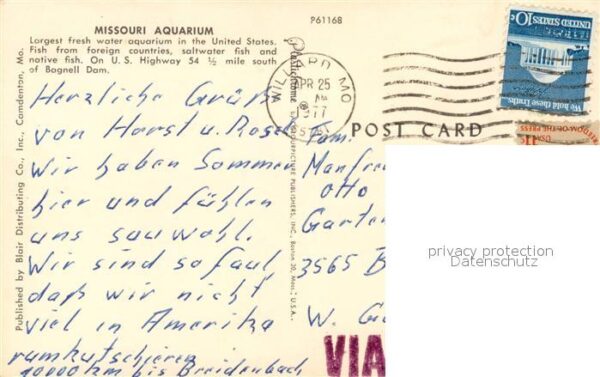 MISSOURI AQUARIUM
Largest fresh water aquarium in the United States.
Fish from foreign countries, saltwater fish and
native fish. On U.S. Highway 54 ½ mile south
of Bagnell Dam.
P61168
Herzliche Grüße
von Horst u. Rosel
Wir haben Sommer
hier und fühlen
uns sauwohl.
Wir sind so faul
daß wir nicht
viel in Amerika
rumkutschieren
10000 km bis Breidenbach
Published by Blair Distributing Co., Inc., Camdenton, Mo.
PUBLISHERS, INC., Boston 30, Mass., U.S.A.
WILLARD MO
APR 25
1977
POST CARD
United States 10c
We hold these Truths
FREEDOM OF THE PRESS
USA
Fam.
Manfred
Otto
Garten
3565 B
W. Ge
VIA
privacy protection
Datenschutz